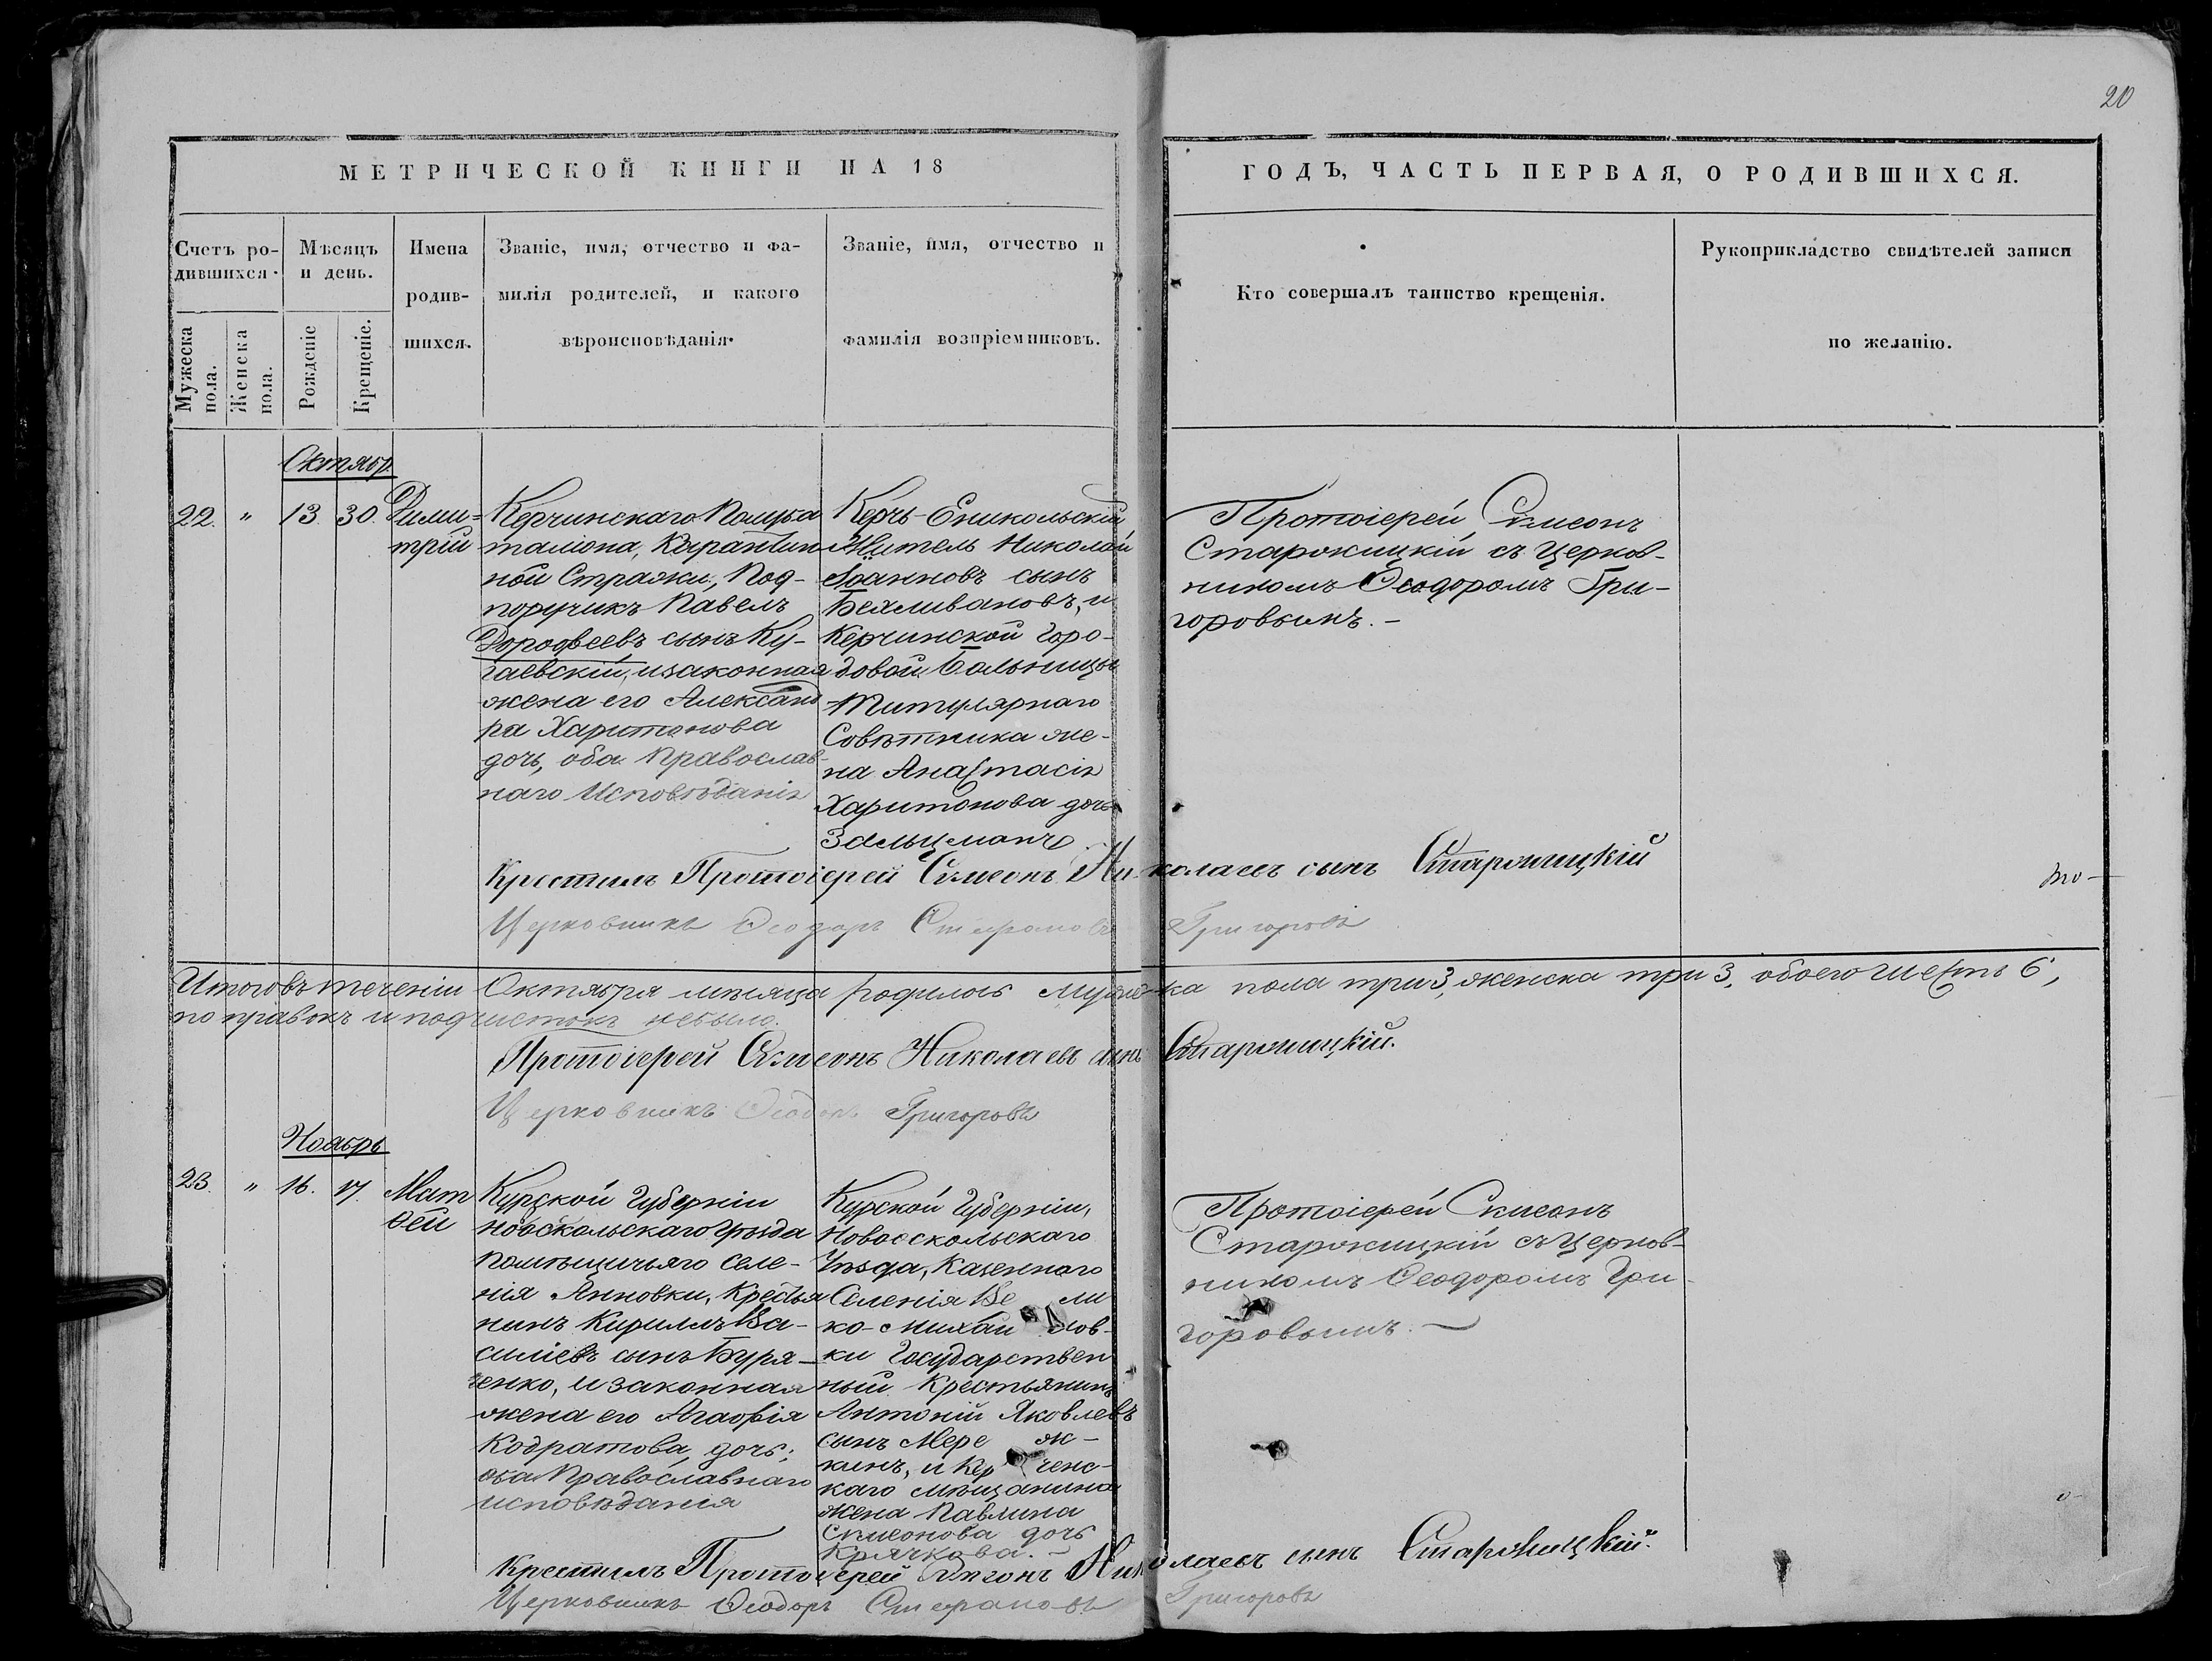 20
МЕТРИЧЕСКОЙ КНИГИ НА 18
ГОДЪ, ЧАСТЬ ПЕРВАЯ, О РОДИВШИХСЯ.
Счетъ ро-
дившихся.
Мужеска
пола.
Женска
пола.
Мѣсяцъ
и день.
Рожденіе
Крещеніе.
Имена
родив-
шихся.
Званіе, имя, отчество и фа-
милія родителей, и какого
вѣроисповѣданія.
Званіе, имя, отчество и
фамилія воспріемниковъ.
Кто совершалъ таинство крещенія.
Рукоприкладство свидѣтелей записи
по желанію.
Октябр
22. " 13. 30.
Дими=
трій
Керчинскаго Полуба
таліона, Карантин
ной Стражи, Под-
поручикъ Павелъ
Дорофеевъ сынъ Ку-
гаевскій, и законная
жена его Александ
ра Харитонова
дочь, оба Православ-
наго Исповѣданія
Керчь-Еникольскій
Житель Николай
Іоанновъ сынъ
Бехливановъ, и
Керчинской Горо-
довой Больницы
Титулярнаго
Совѣтника же-
на Анастасія
Харитонова дочь
Зальцманъ.
Протоіерей Сѵмеонъ
Старожицкій съ Церков-
никомъ Ѳеодоромъ Гри-
горовымъ. -
Крестилъ Протоіерей Сѵмеонъ Николаевъ сынъ Старожицкій
то-
Церковникъ Ѳеодоръ Стефановъ Григоровъ
Итого въ теченіи Октября мѣсяца родилось мужеска пола три 3, женска три 3, обоего шесть 6,
поправокъ и подчистокъ небыло.
Протоіерей Сѵмеонъ Николаевъ сынъ Старожицкій.
Церковникъ Ѳеодоръ Григоровъ
Ноябрь
23. " 16. 17.
Мат
ѳей
Курской Губерніи
Новоскольскаго Уѣзда
Помѣщичьяго Селе-
нія Янновки, Крестья
нинъ Кириллъ Ва-
силіевъ сынъ Буря-
ченко, и законная
жена его Агафія
Кодратова дочь;
оба Православнаго
исповѣданія
Курской Губерніи,
Новооскольскаго
Уѣзда, Казеннаго
Селенія Вели
ко-Михайлов-
ки Государствен
ный Крестьянинъ
Антоній Яковлевъ
сынъ Мереж-
кинъ, и Керченс-
каго мѣщанина
жена Павлина
Сѵмеонова дочь
Крячкова. -
Протоіерей Сѵмеонъ
Старожицкій съ Церков-
никомъ Ѳеодоромъ Гри-
горовымъ. -
Крестилъ Протоіерей Сѵмеонъ Николаевъ сынъ Старожицкій.
Церковникъ Ѳеодоръ Стефановъ Григоровъ